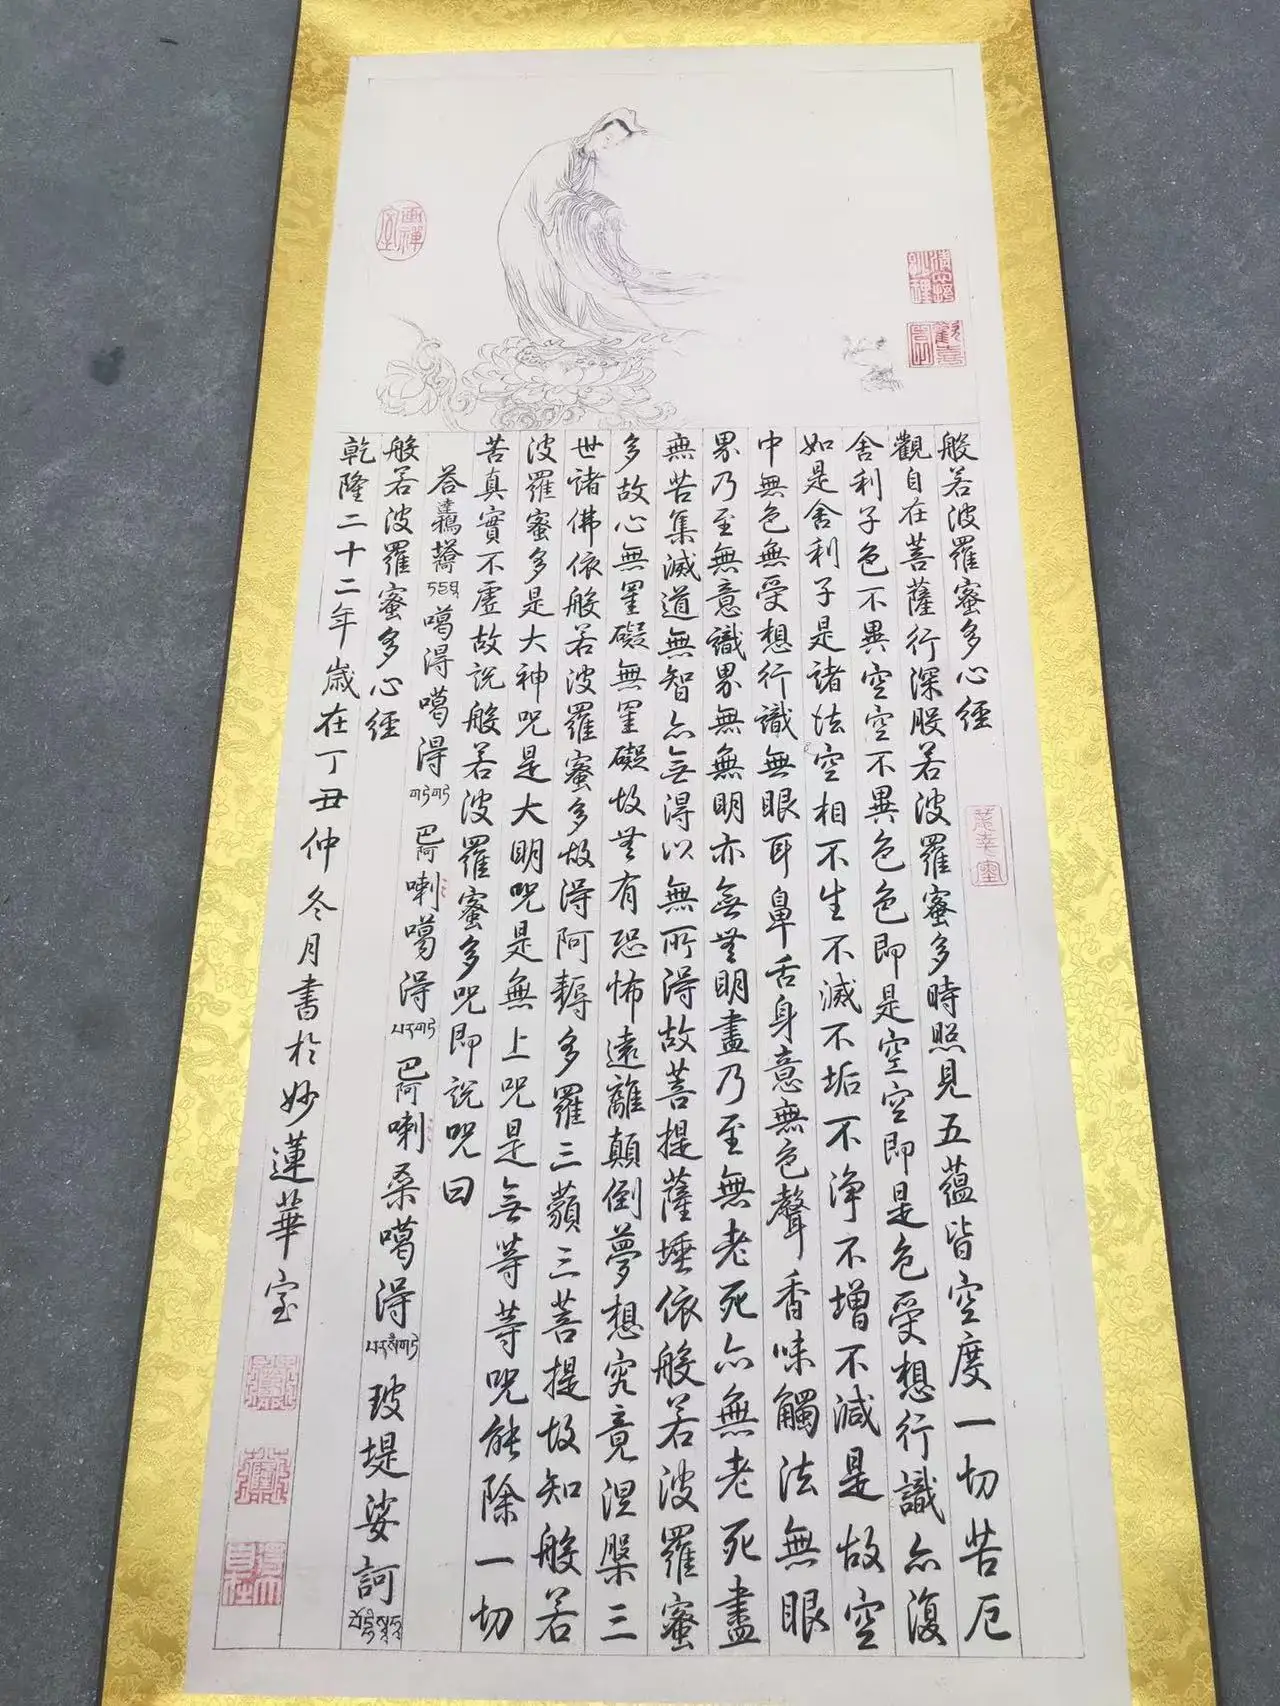 般若波羅蜜多心經
觀自在菩薩行深般若波羅蜜多時照見五蘊皆空度一切苦厄
舍利子色不異空空不異色色即是空空即是色受想行識亦復
如是舍利子是諸法空相不生不滅不垢不淨不增不減是故空
中無色無受想行識無眼耳鼻舌身意無色聲香味觸法無眼
界乃至無意識界無無明亦無無明盡乃至無老死亦無老死盡
無苦集滅道無智亦無得以無所得故菩提薩埵依般若波羅蜜
多故心無罣礙無罣礙故無有恐怖遠離顛倒夢想究竟涅槃三
世諸佛依般若波羅蜜多故得阿耨多羅三藐三菩提故知般若
波羅蜜多是大神咒是大明咒是無上咒是無等等咒能除一切
苦真實不虛故說般若波羅蜜多咒即說咒曰
答達鴉噶得噶得巴阿喇噶得巴阿喇桑噶得玻堤娑訶
般若波羅蜜多心經
乾隆二十二年歲在丁丑仲冬月書於妙蓮華室
畫禪室